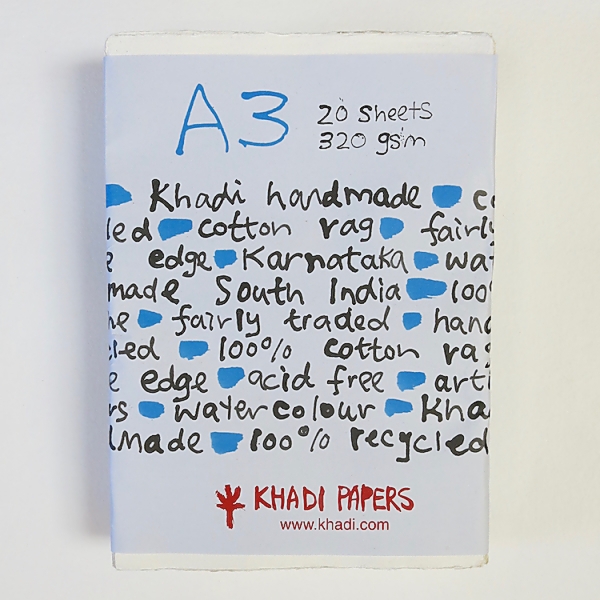 A3 20 sheets
320 gsm
Khadi handmade co
led cotton rag fairly
e edge Karnataka wat
made South India 100%
ne fairly traded hand
cled 100% cotton rag
e edge acid free arti
rs watercolour Kha
dmade 100% recycled
KHADI PAPERS
www.khadi.com